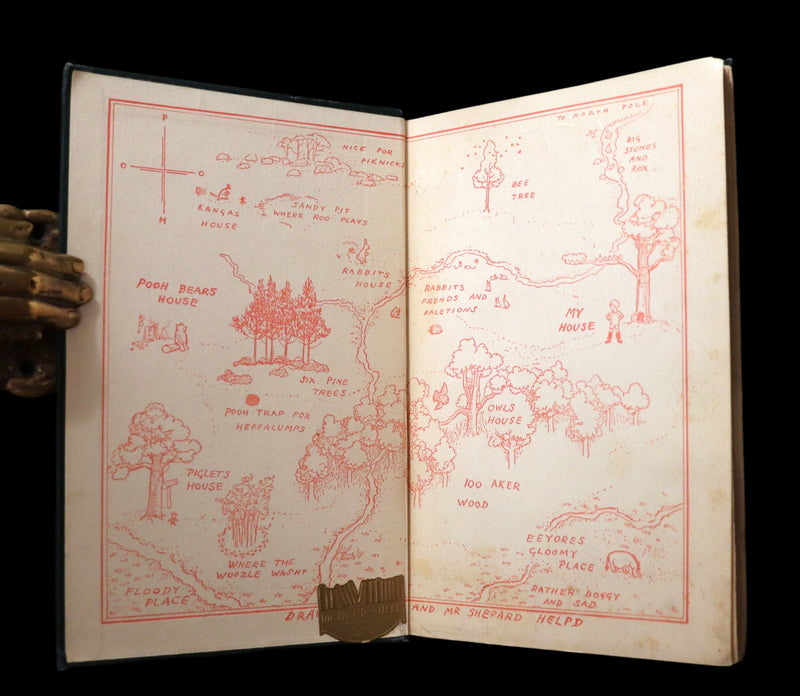 P
O
O
H
NICE FOR
PIKNICKS
KANGAS
HOUSE
SANDY PIT
WHERE ROO PLAYS
RABBITS
HOUSE
POOH BEARS
HOUSE
SIX PINE
TREES
POOH TRAP FOR
HEFFALUMPS
PIGLETS
HOUSE
WHERE THE
WOOZLE WASNT
FLOODY
PLACE
TO NORTH POLE
BIG
STONES
AND
ROX
BEE
TREE
RABBITS
FRENDS AND
RALETIONS
MY
HOUSE
OWLS
HOUSE
100 AKER
WOOD
EEYORES
GLOOMY
PLACE
RATHER BOGGY
AND SAD
AND MR SHEPARD HELPD